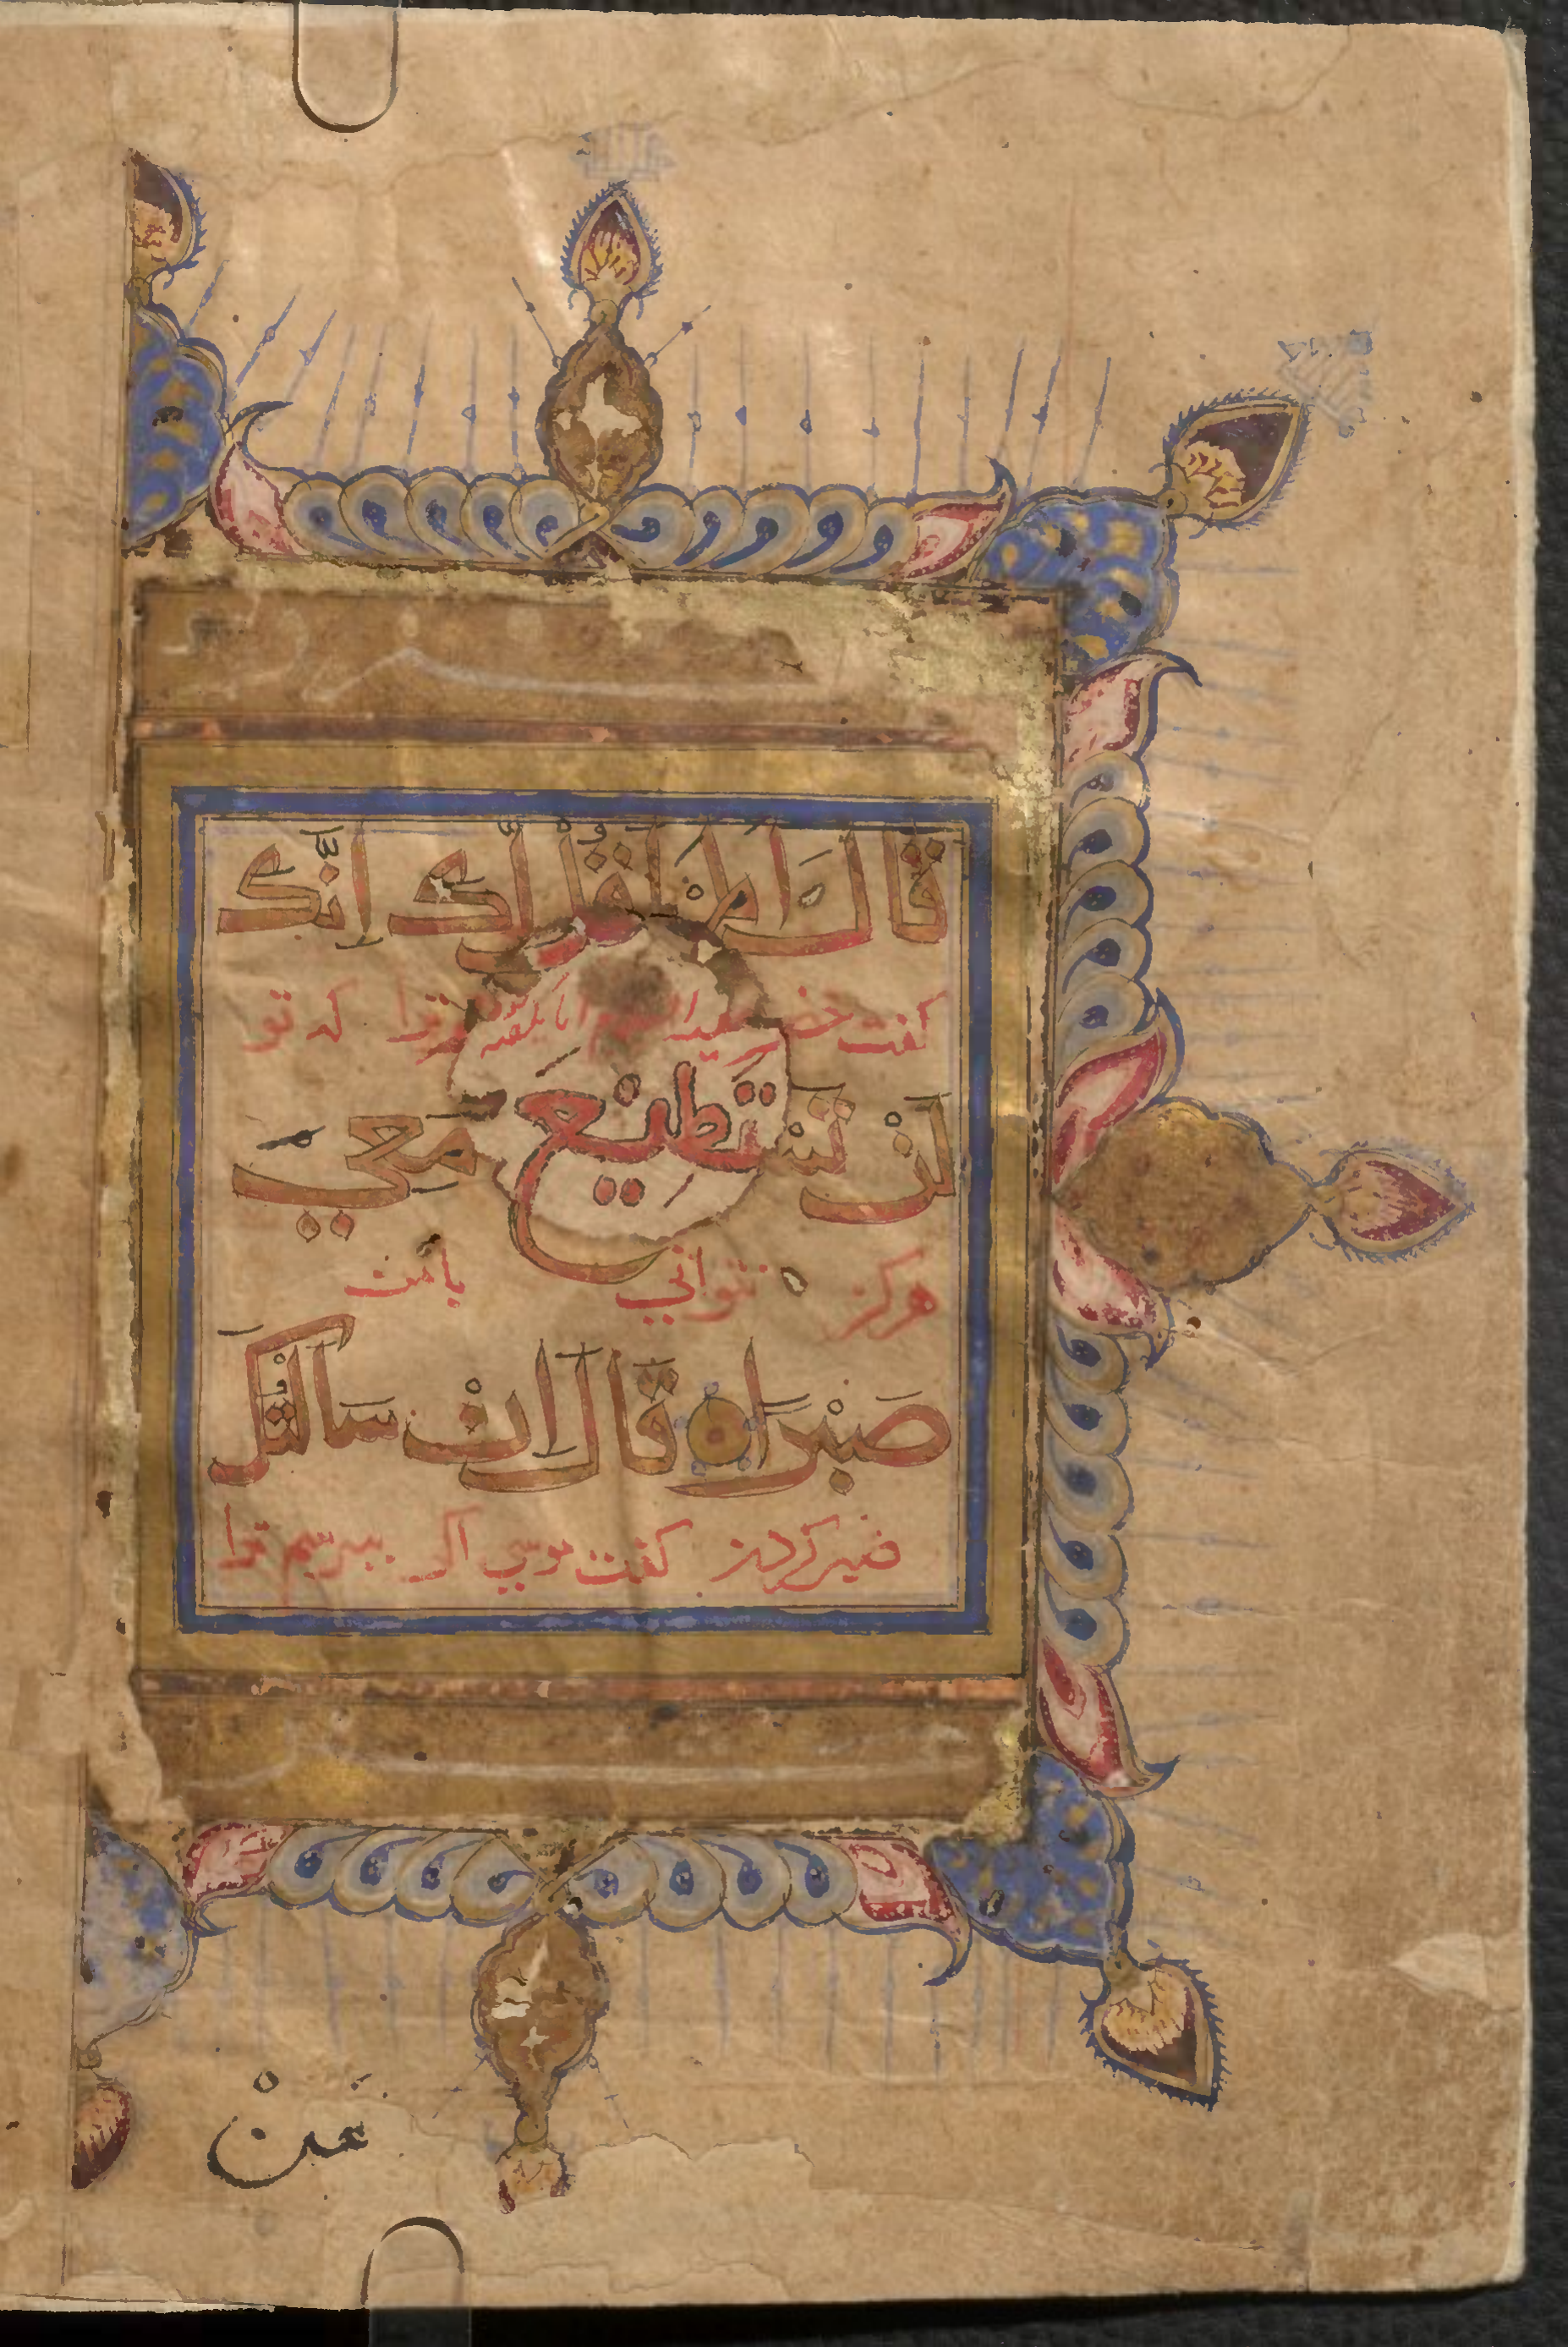 قَالَ اَلَمْ اَقُلْ لَّكَ اِنَّكَ
كفت خضر ترا كه تو
لَنْ تَسْتَطِيْعَ مَعِيَ
هركز نتواني بامن
صَبْرًا قَالَ اِنْ سَاَلْتُكَ
صبر كردن كفت موسي اكر بپرسم ترا
عَنْ